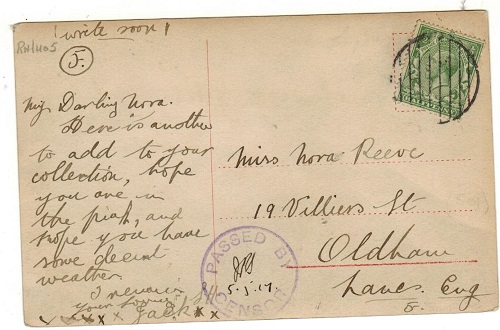 write soon!
RH/1405
5.
My Darling Nora.
Here is another
to add to your
collection, hope
you are in
the pink, and
hope you have
some decent
weather.
I remain
your loving
Jack
x x x x x x
Miss Nora Reeve
19 Villiers St
Oldham
Lancs. Eng
PASSED BY
CENSOR
5.1.17.